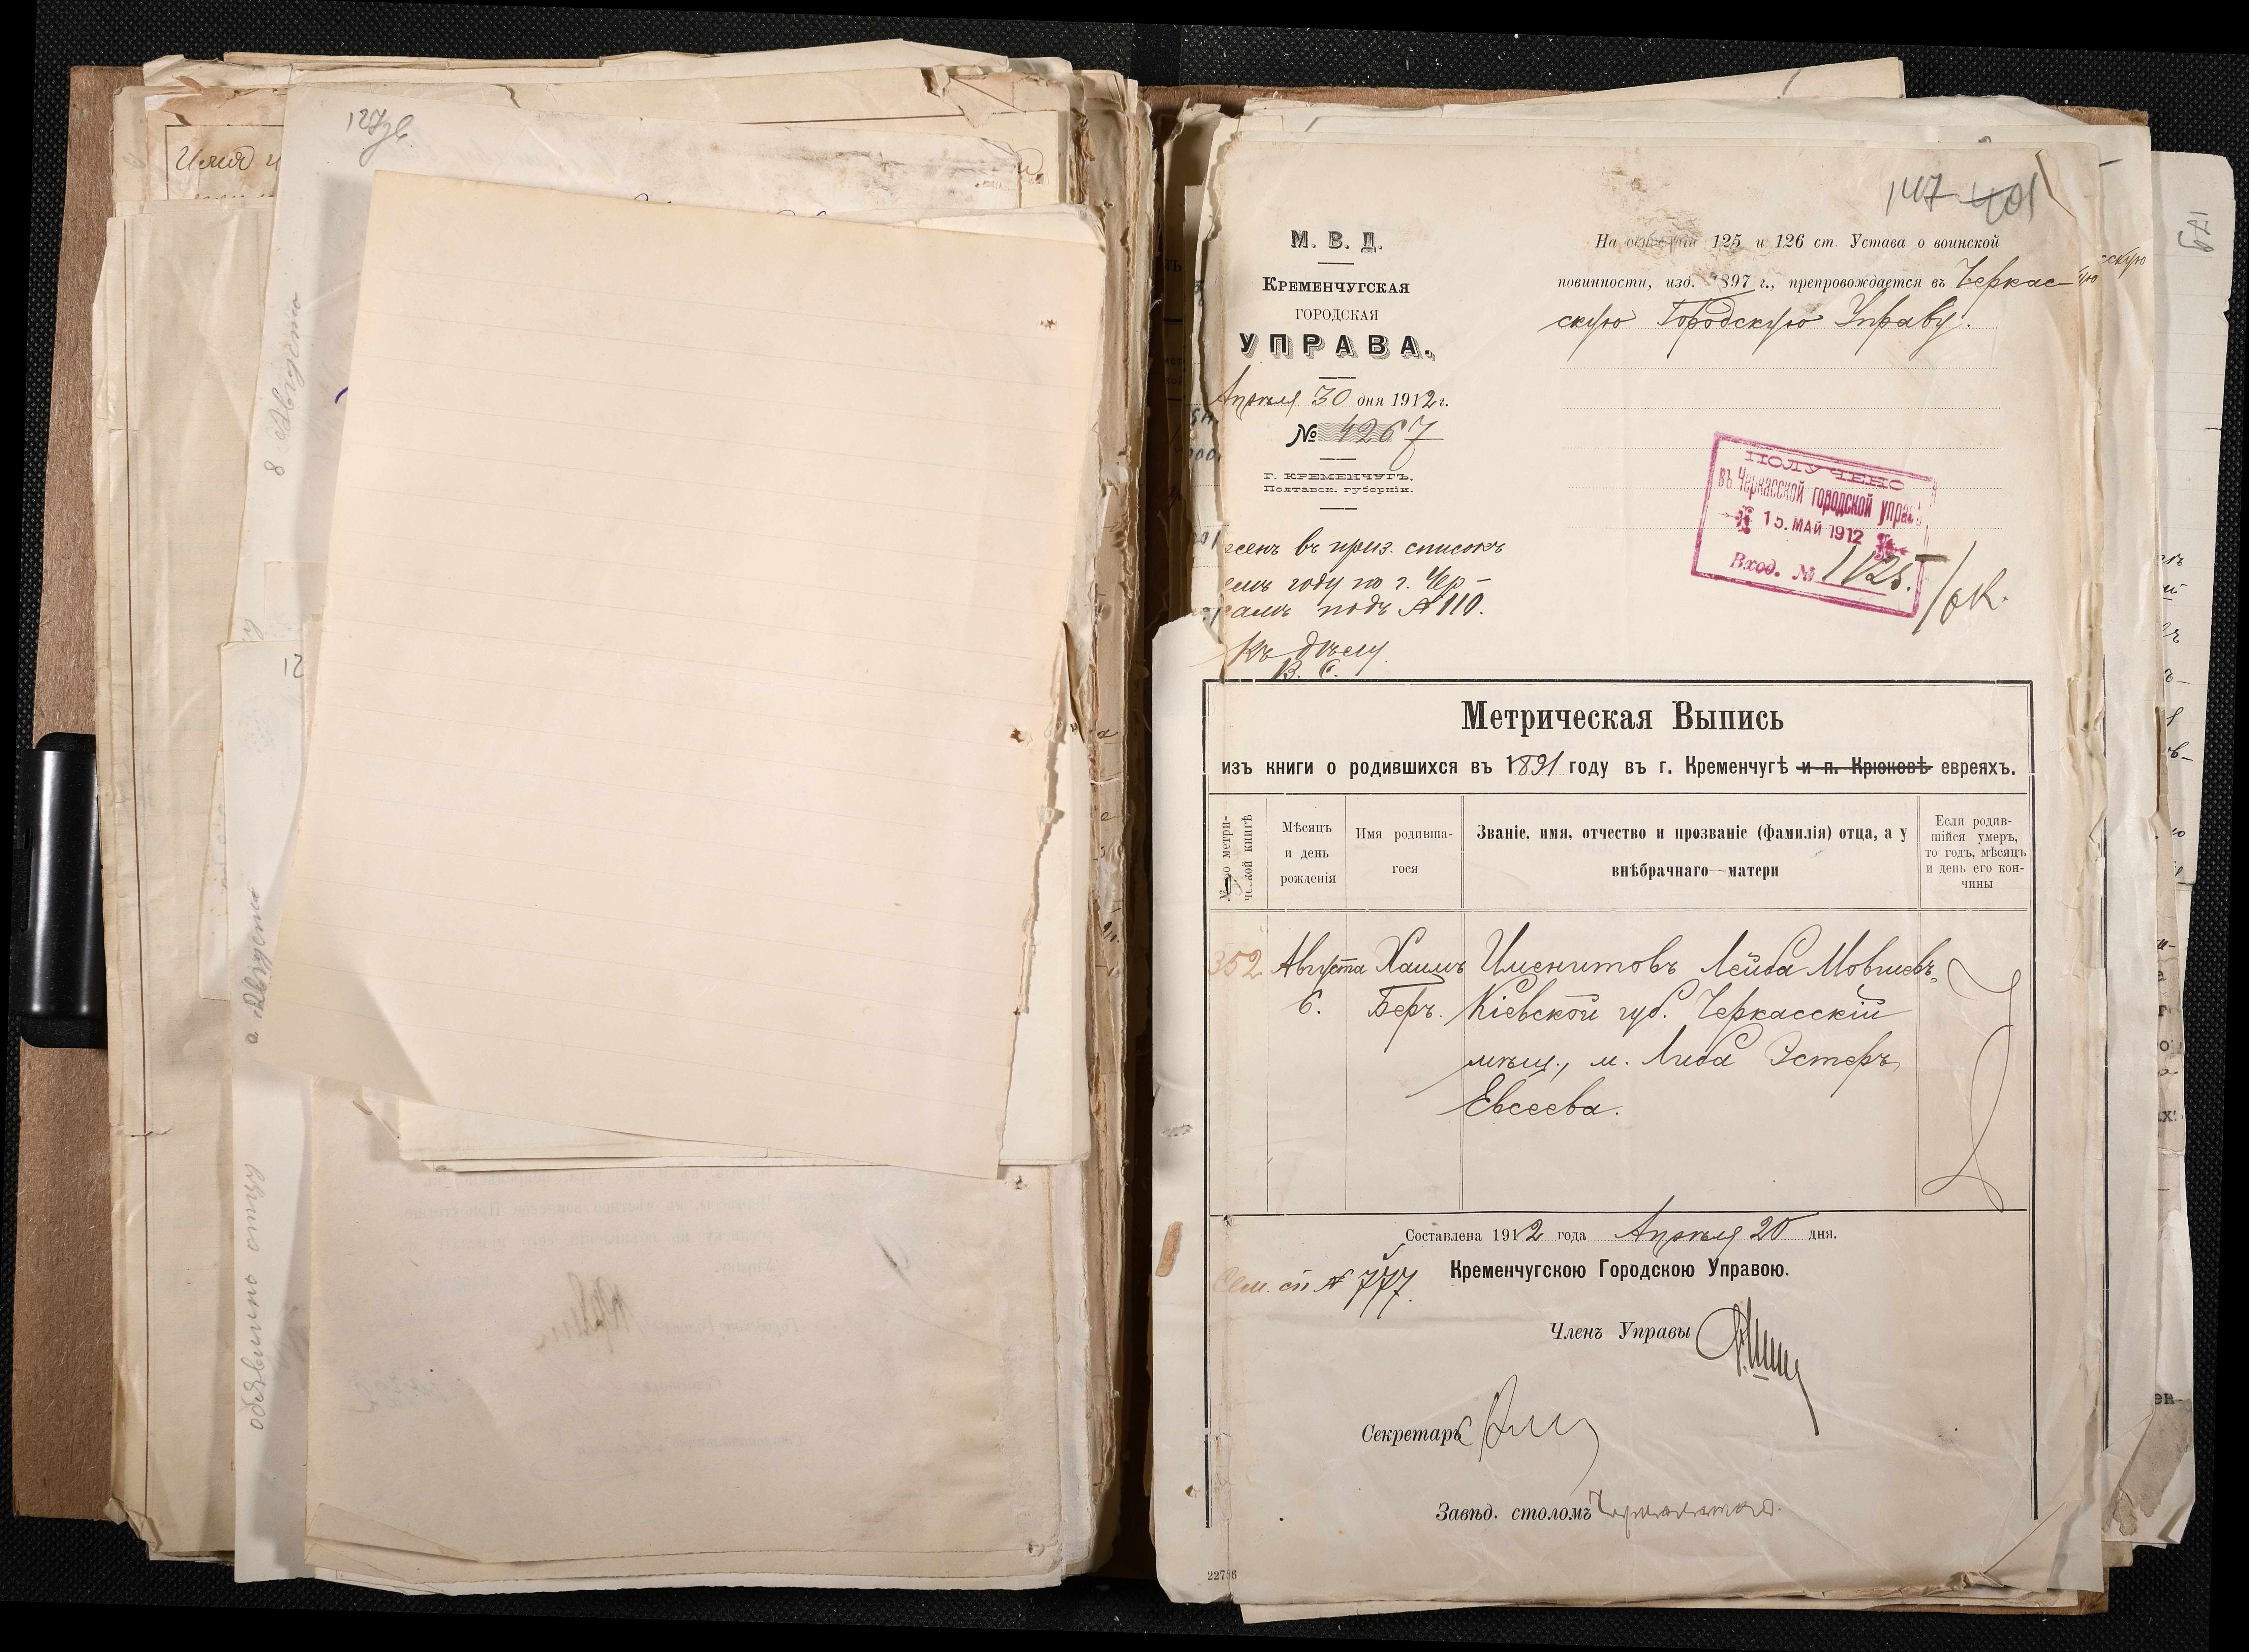 127 зв.
Имя и
8 Августа
12
а Августа
объявлено отцу
147 401
М. В. Д.
Кременчугская
городская
УПРАВА.
Апрѣля 30 дня 1912 г.
№ 4267
Г. КРЕМЕНЧУГЪ,
Полтавск. губерніи.
На основаніи 125 и 126 ст. Устава о воинской
повинности, изд. 1897 г., препровождается въ Черкас
скую Городскую Управу.
ПОЛУЧЕНО
въ Черкасской городской управ
15. МАЙ 1912
Вход. № 1125.
сенъ въ приз. списокъ
емъ году по г. Чер-
самъ подъ № 110.
Къ дѣлу
Метрическая Выпись
изъ книги о родившихся въ 1891 году въ г. Кременчугѣ и п. Крюковѣ евреяхъ.
№ по метри-
ческой книгѣ
Мѣсяцъ
и день
рожденія
Имя родивша-
гося
Званіе, имя, отчество и прозваніе (фамилія) отца, а у
внѣбрачнаго—матери
Если родив-
шійся умеръ,
то годъ, мѣсяцъ
и день его кон-
чины
352 Августа Хаимъ Именитовъ Лейба Мовшевъ,
6. Беръ. Кіевской губ. Черкасскій
мѣщ., м. Либа Эстеръ
Евсеева.
Составлена 1912 года Апрѣля 20 дня.
Кременчугскою Городскою Управою.
Сем. сп № 777.
Членъ Управы
Секретарь
Завѣд. столомъ
22786